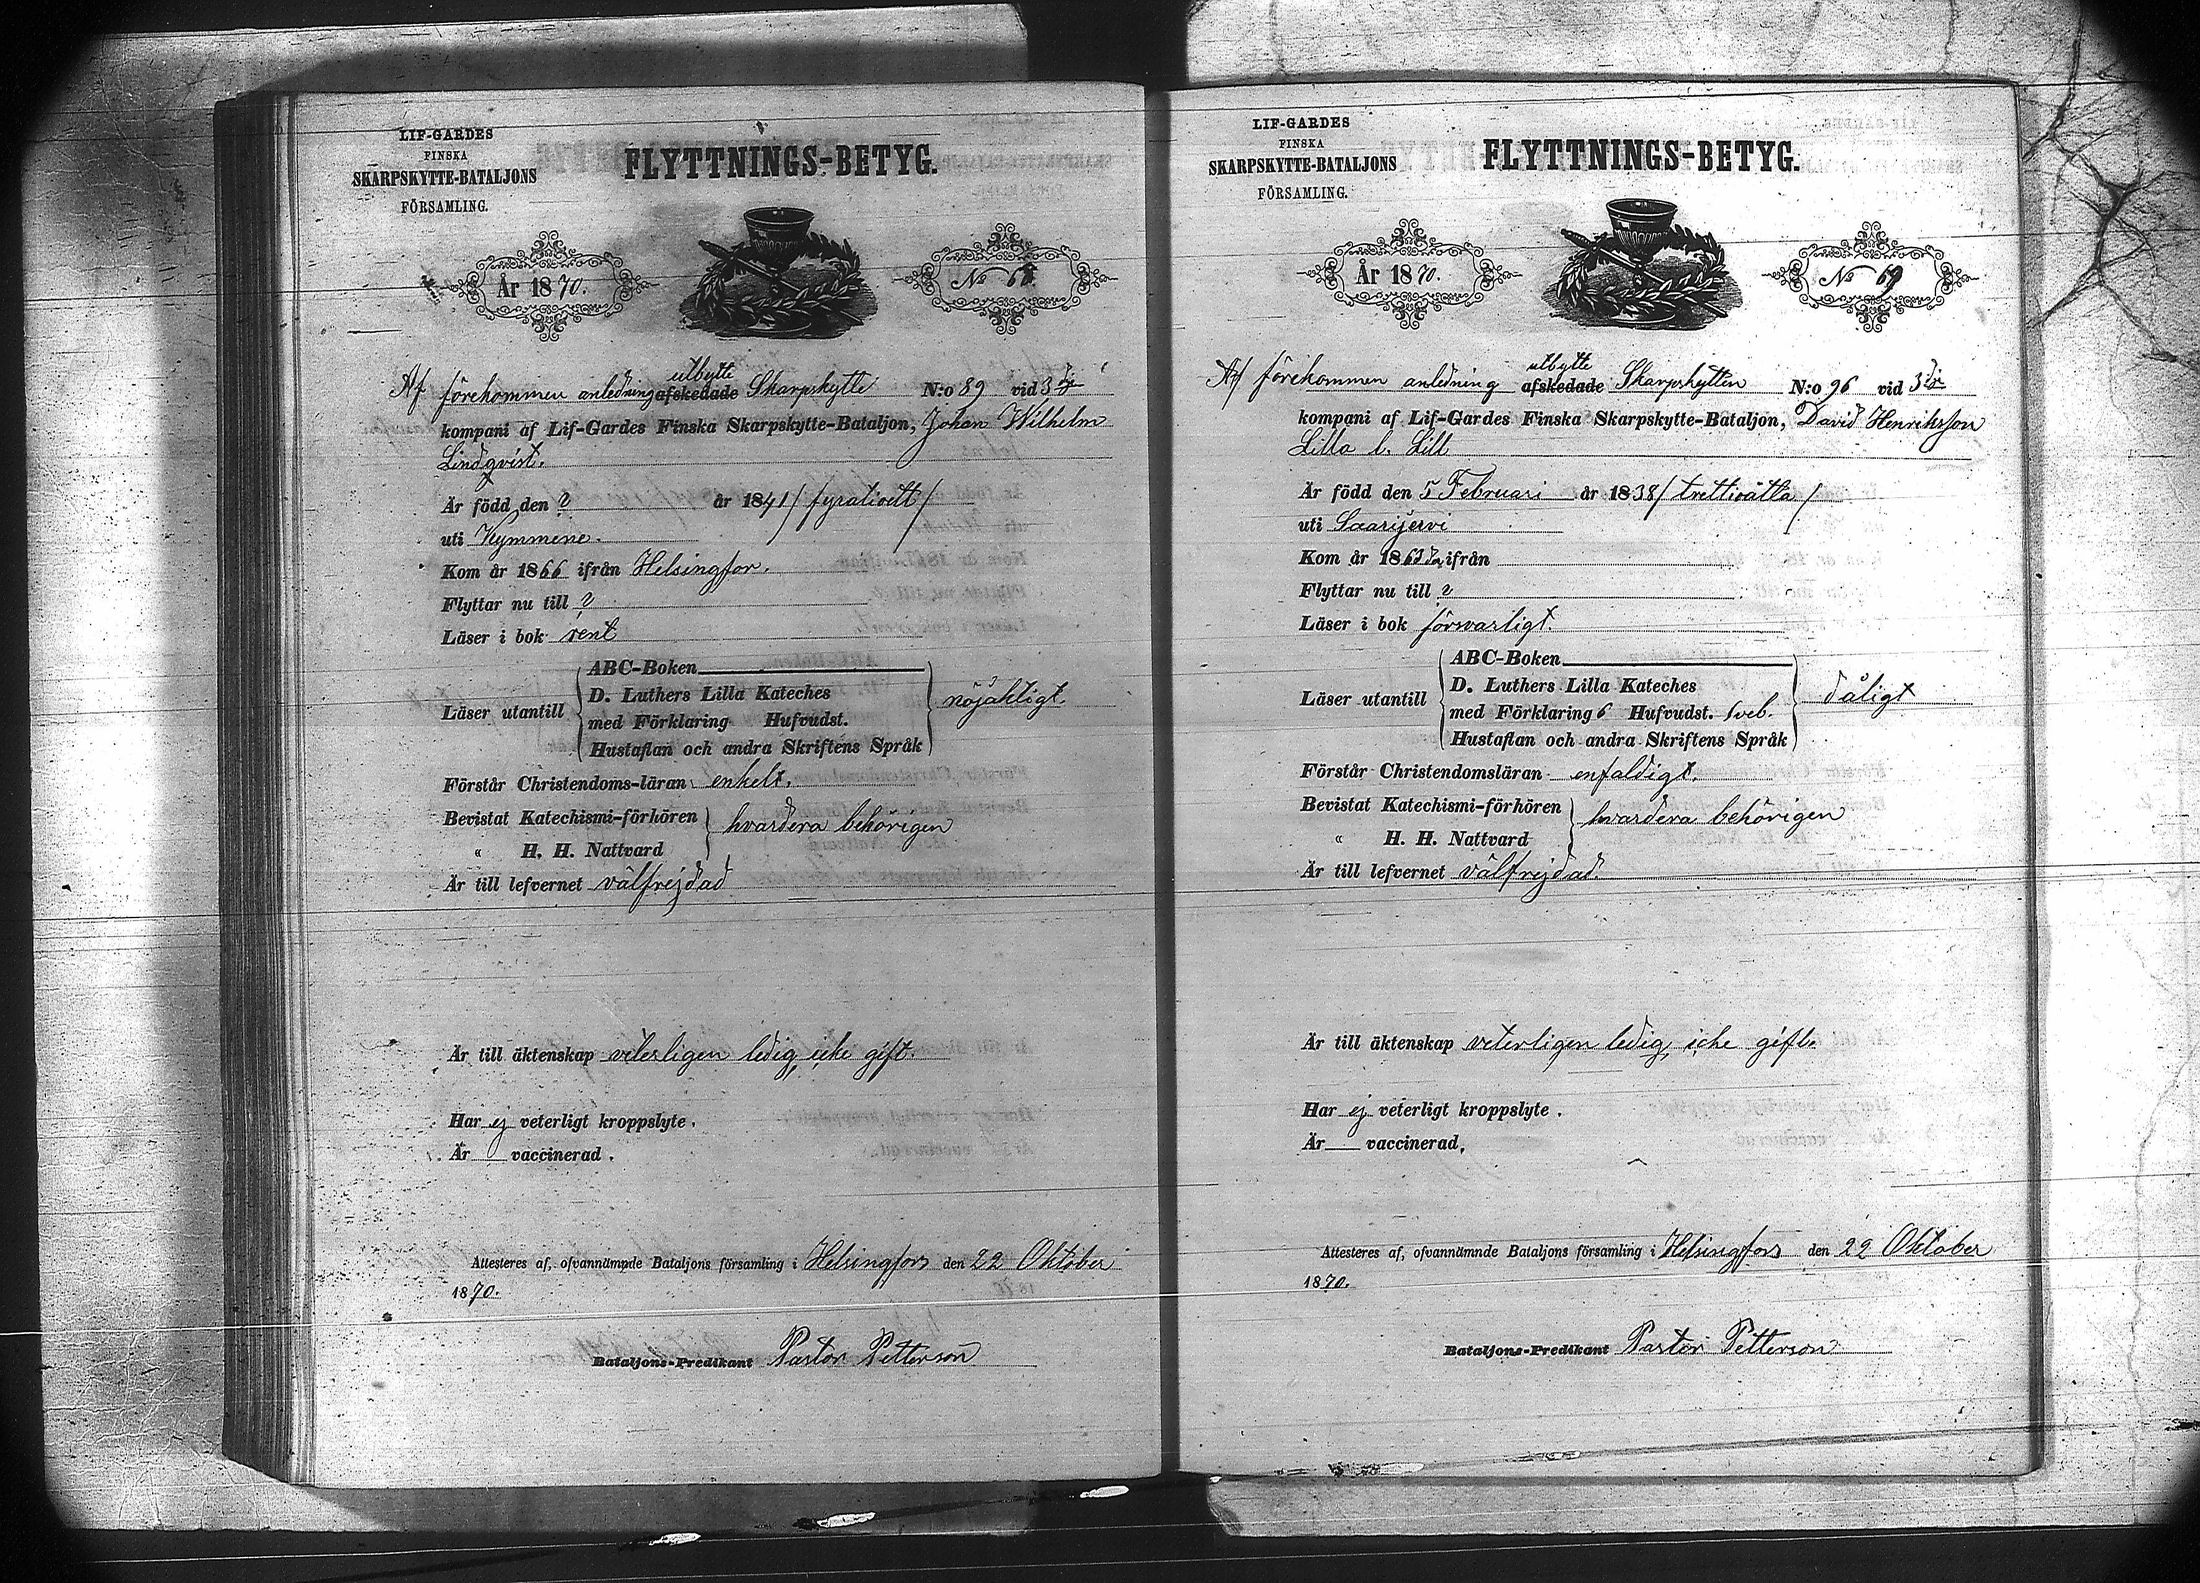 LIF-GARDES
FINSKA
SKARPSKYTTE-BATALJONS
FÖRSAMLING.
FLYTTNINGS-BETYG.
År 1870.
No 68.
utbytte
Af förekommen anledning afskedade Skarpskytte N:o 89 vid 3 dje
kompani af Lif-Gardes Finska Skarpskytte-Bataljon, Johan Wilhelm
Lindqvist.
Är född den ? år 1841 / fyratioett /
uti Kymmene.
Kom år 1866 ifrån Helsingfor.
Flyttar nu till ?
Läser i bok rent
ABC-Boken
D. Luthers Lilla Kateches
Läser utantill med Förklaring Hufvudst. nöjaktigt.
Hustaflan och andra Skriftens Språk
Förstår Christendoms-läran enkelt.
Bevistat Katechismi-förhören hvardera behörigen
« H. H. Nattvard
Är till lefvernet välfrejdad
Är till äktenskap veterligen ledig, icke gift.
Har ej veterligt kroppslyte.
Är vaccinerad.
Attesteres af, ofvannämnde Bataljons församling i Helsingfors den 22 Oktober
1870.
Bataljons-Predikant Pastor Petterson
LIF-GARDES
FINSKA
SKARPSKYTTE-BATALJONS
FÖRSAMLING.
FLYTTNINGS-BETYG.
År 1870.
No 69
utbytte
Af förekommen anledning afskedade Skarpskytten N:o 96 vid 3 dje
kompani af Lif-Gardes Finska Skarpskytte-Bataljon, David Henriksson
Lilla l. Lill
Är född den 5 Februari år 1838 / trettioåtta /
uti Saarijervi
Kom år 1863 ifrån
Flyttar nu till ?
Läser i bok försvarligt.
ABC-Boken
D. Luthers Lilla Kateches
Läser utantill med Förklaring 6 Hufvudst. Sveb. dåligt
Hustaflan och andra Skriftens Språk
Förstår Christendomsläran enfaldigt.
Bevistat Katechismi-förhören hvardera behörigen
« H. H. Nattvard
Är till lefvernet välfrejdad.
Är till äktenskap veterligen ledig, icke gift.
Har ej veterligt kroppslyte.
Är vaccinerad,
Attesteres af, ofvannämnde Bataljons församling i Helsingfors den 22 Oktober
1870.
Bataljons-Predikant Pastor Petterson